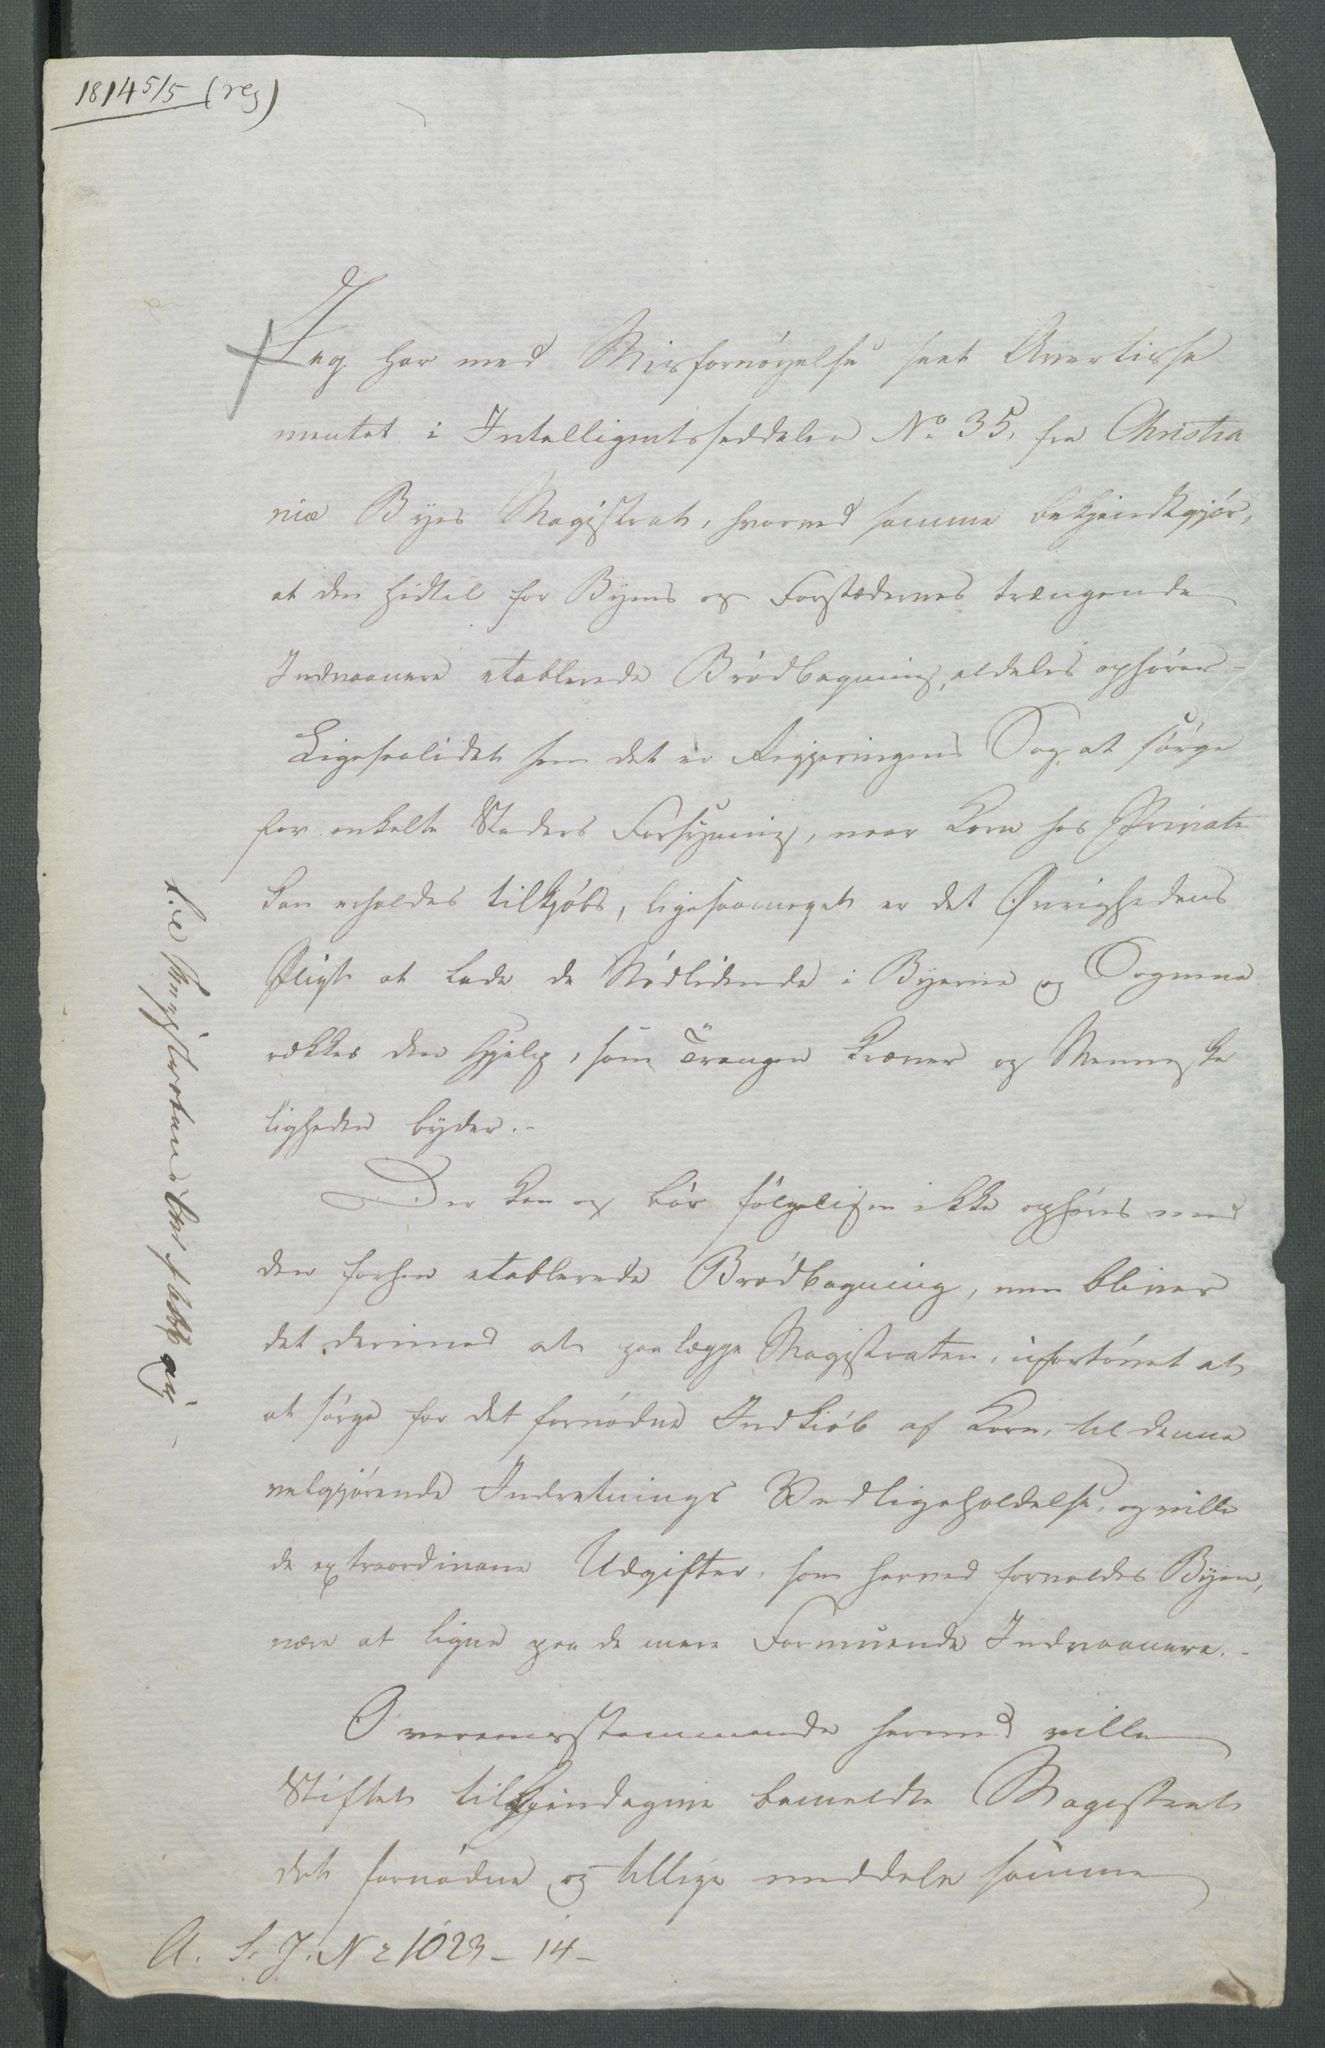 1814 5/5 (reg)
Jeg har med Misfornöyelse seet Avertisse
mentet i Intelligentsseddelen No. 35, fra Christia
niæ Byes Magistrat, hvorved samme bekjendtgjör,
at den hidtil for Byens og Forstædernes trængende
Indvaanere etablerede Brödbagning, aldeles ophörer –
Ligesaalidet som det er Regjeringens Sag, at sörge
for enkelte Stæders Forsyning, naar Korn hos Private
kan erholdes tilkjöbs, ligesaameget er det Øvrighedens
Pligt at lade de Nödlidende i Byerne og Sognene
rækkes den Hjelp, som Trangen kræver og Menneske
ligheden byder. –
Der kan og bör fölgeligen ikke ophöres med
den forhen etablerede Brödbagning, men bliver
det derimod at paalægge Magistraten, ufortövet at
at sörge for det fornödne Indkiöb af Korn, til denne
velgjörende Indretnings Vedligeholdelse, og ville
de extraordinaire Udgifter, som herved forvoldes Byen,
være at ligne paa de mere Formuende Indvaanere. –
Overeensstemmende hermed ville
Stiftet tilkjendegive bemeldte Magistrat
det fornödne og tillige meddele samme
A. S. J. Nr 1023 – 14 –